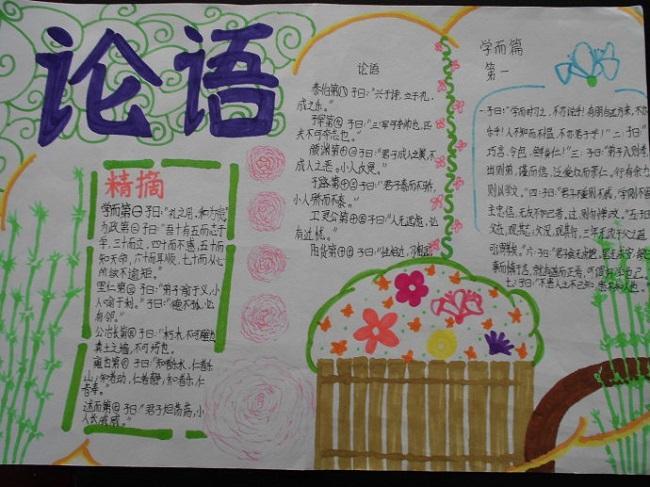 论语
精摘
学而第一 子曰："礼之用，和为贵。"
为政第二 子曰："吾十有五而志于
学，三十而立，四十而不惑，五十而
知天命，六十而耳顺，七十而从心
所欲不逾矩。"
里仁第四 子曰："君子喻于义，小
人喻于利。"子曰："德不孤，必
有邻。"
公冶长第五 子曰："朽木不可雕也
粪土之墙，不可杇也。
雍也第六 子曰："知者乐水，仁者乐
山；知者动，仁者静，知者乐，仁
者寿。"
述而第七 子曰："君子坦荡荡，小
人长戚戚。"
论语
泰伯第八 子曰："兴于诗，立于礼，
成之乐。"
子罕第九 子曰："三军可夺帅也，匹
夫不可夺志也。"
颜渊第十二 子曰："君子成人之美，不
成人之恶。小人反是。"
子路第十三 子曰："君子泰而不骄，
小人骄而不泰。"
子曰："人无远虑，必
有近忧。"
阳货第十七 子曰："性相近，习相远
学而篇
第一
一·子曰："学而时习之，不亦说乎！有朋自远方来，不亦
乐乎！人不知而不愠，不亦君子乎！"二·子曰："
巧言，令色，鲜矣仁！"三·子曰："弟子入则孝，
出则弟，谨而信，泛爱众而亲仁。行有余力
则以学文。"四·子曰："君子不重则不威，学则不固
主忠信，无友不如己者，过，则勿惮改。"五·子曰
父在，观其志；父没，观其行；三年无改于父之道
可谓孝矣。"六·子曰："君子食无求饱，居无求安，敏于
事而慎于言，就有道而正焉，可谓好学也已。"
七·子曰："不患人之不己知，患不知人也。"